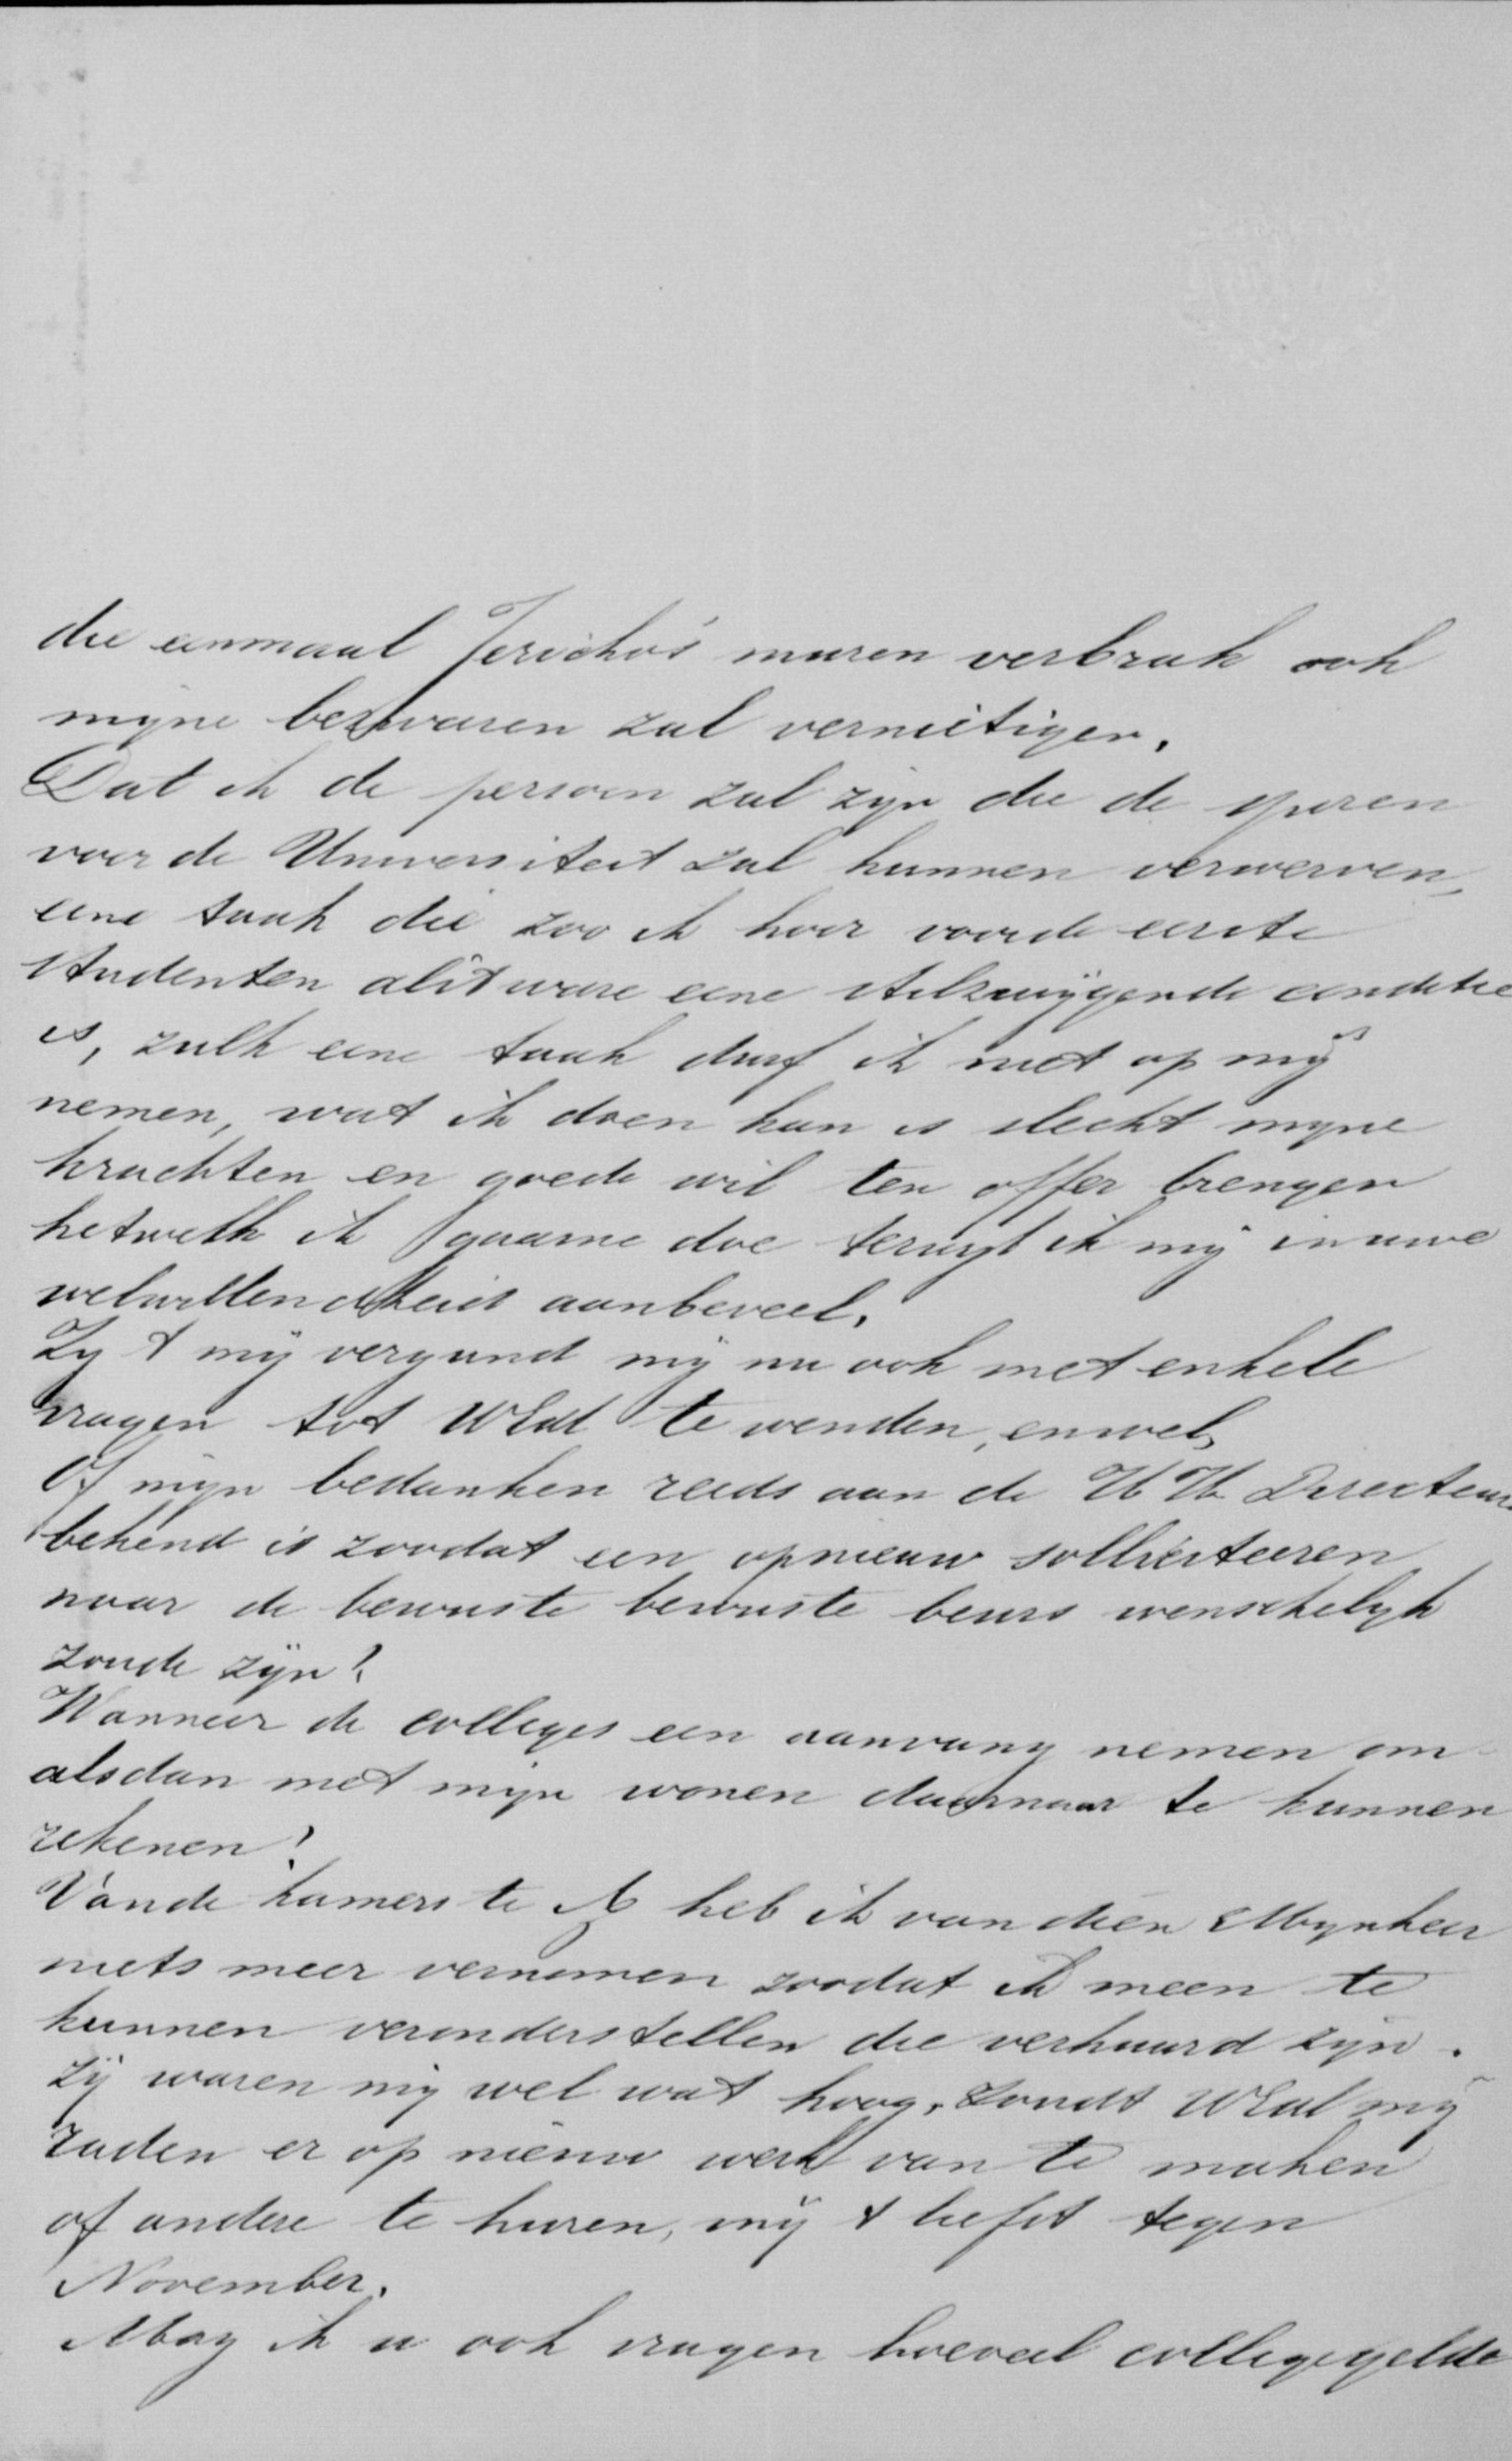 die eenmaal Jericho's muren verbrak ook
mijne bezwaren zal vernietigen.
Dat ik de persoon zal zijn die de sporen
voor de Universiteit zal kunnen verwerven,
eene taak die zoo ik hoor voor de eerste
studenten als't ware eene stilzwijgende conditie
is, zulk eene taak durf ik niet op mij
nemen, wat ik doen kan is slecht mijne
krachten en goede wil ten offer brengen
hetwelk ik gaarne doe terwijl ik mij in uwe
welwillendheid aanbeveel.
Zij 't mij vergund mij nu ook met enkele
vragen tot WEd te wenden, en wel,
Of mijn bedanken reeds aan de HH Directeuren
bekend is zoodat een opnieuw solliciteeren
naar de bewuste bewuste beurs wenschelijk
zoude zijn?
Wanneer de colleges een aanvang nemen om
alsdan met mijn wonen daarnaar te kunnen
rekenen?
Van de kamers te A heb ik van dien Mijnheer
niets meer vernomen zoodat ik meen te
kunnen veronderstellen die verhuurd zijn.
Zij waren mij wel wat hoog. Zoudt WEd mij
raden er op nieuw werk van te maken
of andere te huren, mij 't liefst tegen
November.
Mag ik u ook vragen hoeveel collegegelde